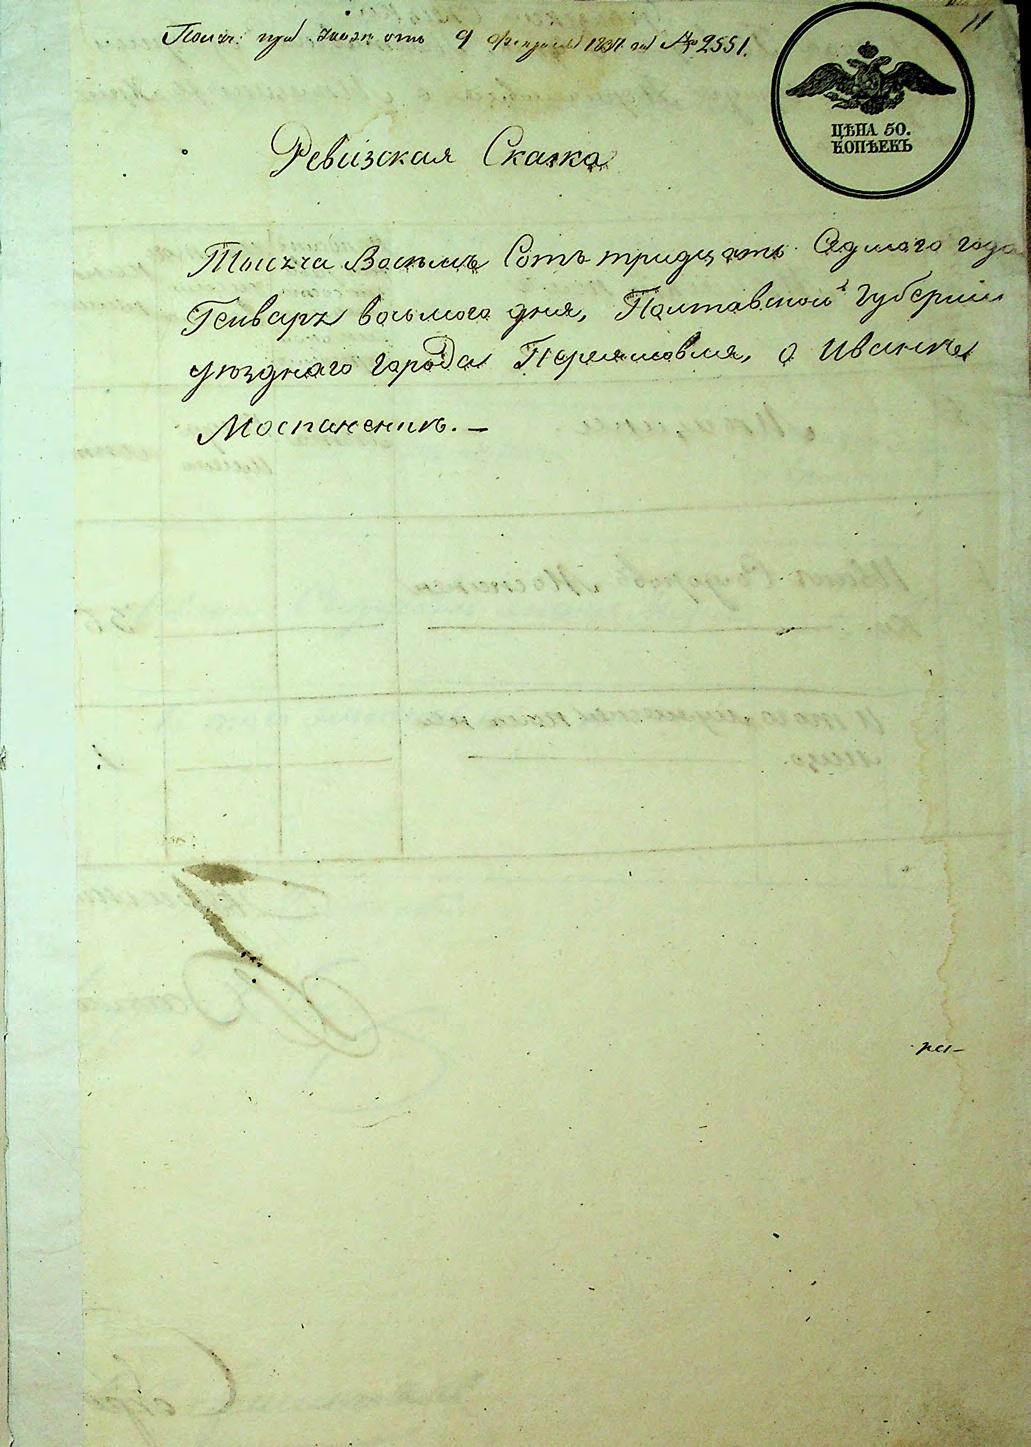 11
Получ: при указе отъ 9 февраля 1837 года № 2551.
ЦѢНА 50.
КОПѢЕКЪ
Ревизская Сказка
Тысяча Восемь Сотъ тридцать Седмаго года
Генваря восьмого дня, Полтавской Губерніи
уѣзднаго города Переяслова, о Иванѣ
Моспаненкѣ. —